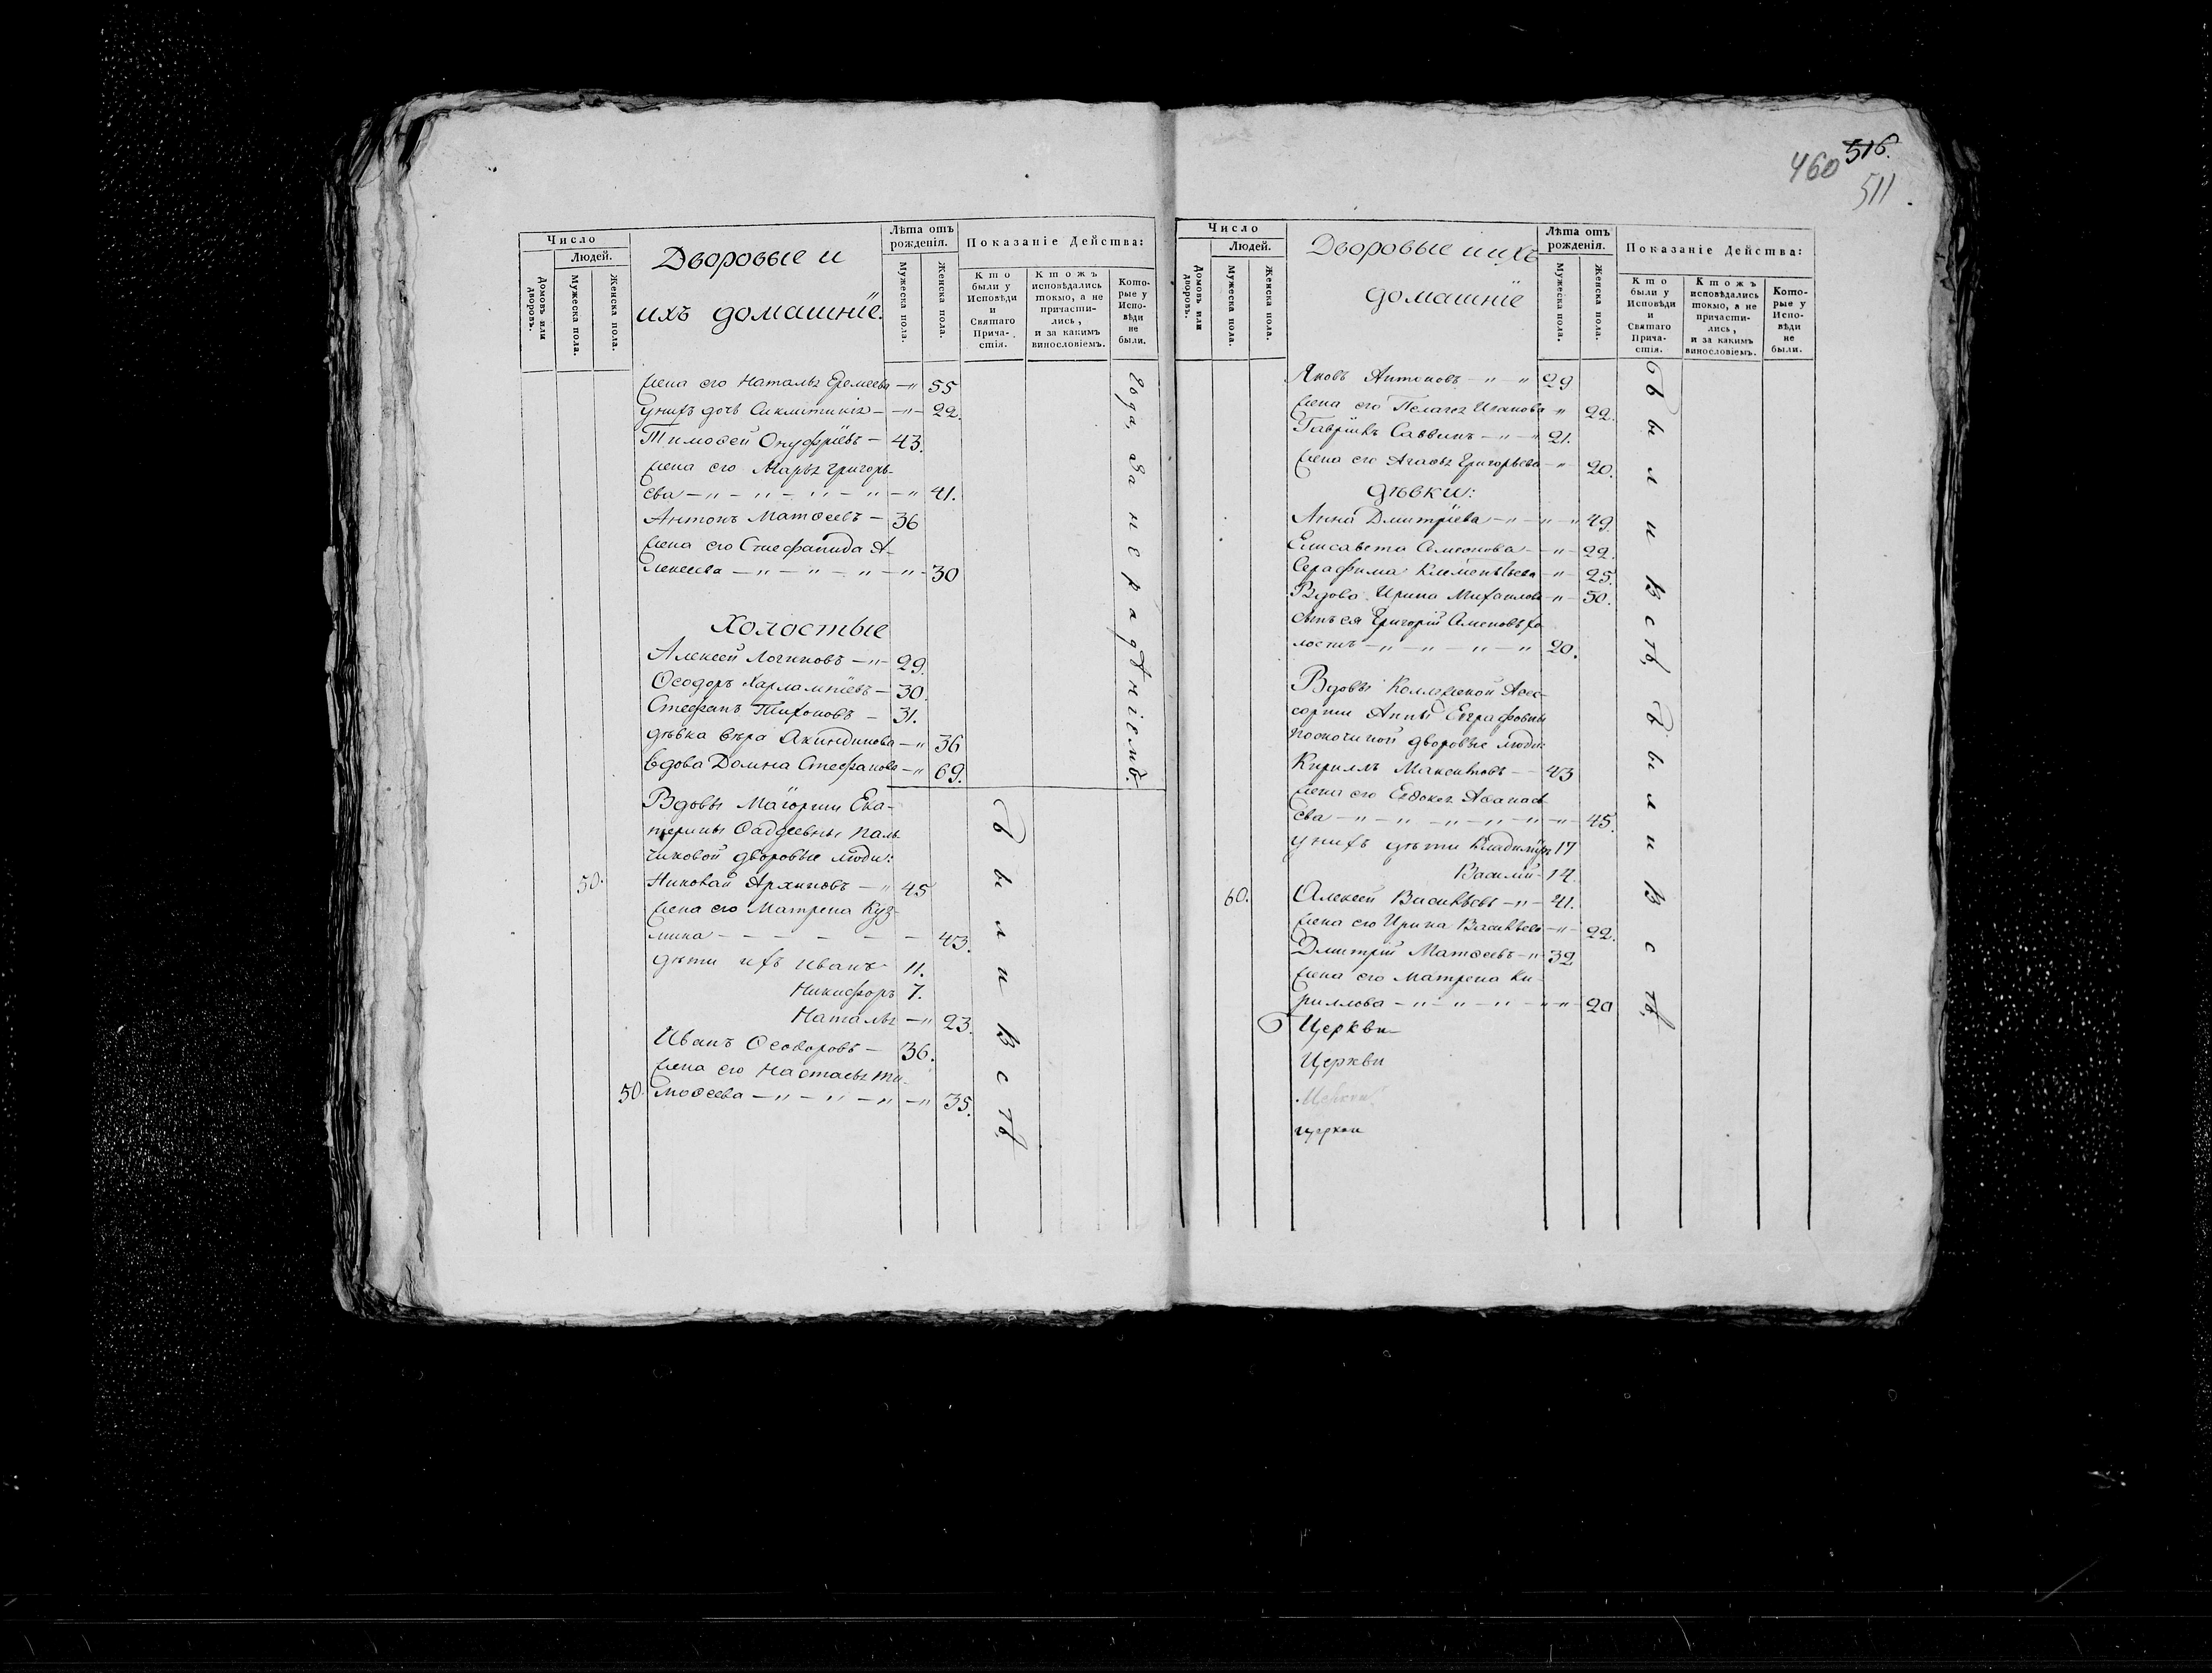 460 516.
511
Число
Людей.
Домовъ или дворовъ.
Мужеска пола.
Женска пола.
Дворовые и
ихъ домашніе.
Лѣта отъ рожденія.
Мужеска пола.
Женска пола.
Показаніе Действа:
Кто были у Исповѣди и Святаго Прича-стія.
Ктожъ исповѣдались токмо, а не причасти-лись, и за какимъ винословіемъ.
Кото-рые у Испо-вѣди не были.
Жена его Наталья Еремеева —〃 55
у нихъ дочь Сиклитикія — 〃 — 22.
Тимоѳей Онуфріевъ — 43.
Жена его Марья Григорь-
ева — 〃 — 〃 — 〃 — 〃 — 〃 41.
Антонъ Матѳеевъ — 36
Жена его Стефанида А-
лексеева — 〃 — 〃 — 〃 — 〃 — 30
Холостые
Алексей Логиновъ — 〃 — 29.
Ѳеодоръ Харлампіевъ — 30.
Стефанъ Тихоновъ — 31.
дѣвка Вѣра Акиндинова — 〃 36
вдова Домна Стефанова — 〃 69.
за нерадѣніемъ.
Вдовы Маіорши Ека-
терины Ѳаддеевны Паль-
чиковой дворовые люди:
50. Николай Архиповъ — 〃 45
Жена его Матрена Куз-
мина — — — — — — 43.
дѣти ихъ Иванъ 11.
Никифоръ 7.
Наталья — 〃 23.
Иванъ Ѳеодоровъ — 36.
Жена его Настасья Ти-
50. моѳеева — 〃 — 〃 — 〃 — 〃 35.
Были Всѣ
Число
Людей.
Домовъ или дворовъ.
Мужеска пола.
Женска пола.
Дворовые и ихъ
домашніе
Лѣта отъ рожденія.
Мужеска пола.
Женска пола.
Показаніе Действа:
Кто были у Исповѣди и Святаго Прича-стія.
Ктожъ исповѣдались токмо, а не причасти-лись, и за какимъ винословіемъ.
Кото-рые у Испо-вѣди не были.
Яковъ Антоновъ — 〃 — 〃 29
Жена его Пелагея Иванова 〃 22.
Гавріилъ Саввинъ — 〃 — 〃 21.
Жена его Агаѳья Григорьева — 〃 20.
дѣвки:
Анна Дмитріева — 〃 — 〃 — 〃 49.
Елисавета Симеонова — 〃 — 22.
Серафима Климентьева — 〃 — 25.
Вдова Ирина Михаилова — 〃 — 50.
сынъ ея Григорій Симеоновъ хо-
лостъ — 〃 — 〃 — 〃 — 〃 20.
Вдовы Коллежской Асес-
сорши Анны Евграфовны
дворовые люди:
Кириллъ Максимовъ — 43
Жена его Евдокея Аѳанась-
ева — 〃 — 〃 — 〃 — 〃 — 〃 — 45.
у нихъ дѣти Владимиръ 17
Василій 14.
60. Алексей Васильевъ — 〃 — 41.
Жена его Ирина Васильева — 〃 — 22.
Дмитрій Матѳеевъ — 〃 — 32
Жена его Матрена Ки-
риллова — 〃 — 〃 — 〃 — 〃 — 20
Церкви
Церкви
церкви
Были Всѣ, Были Всѣ,